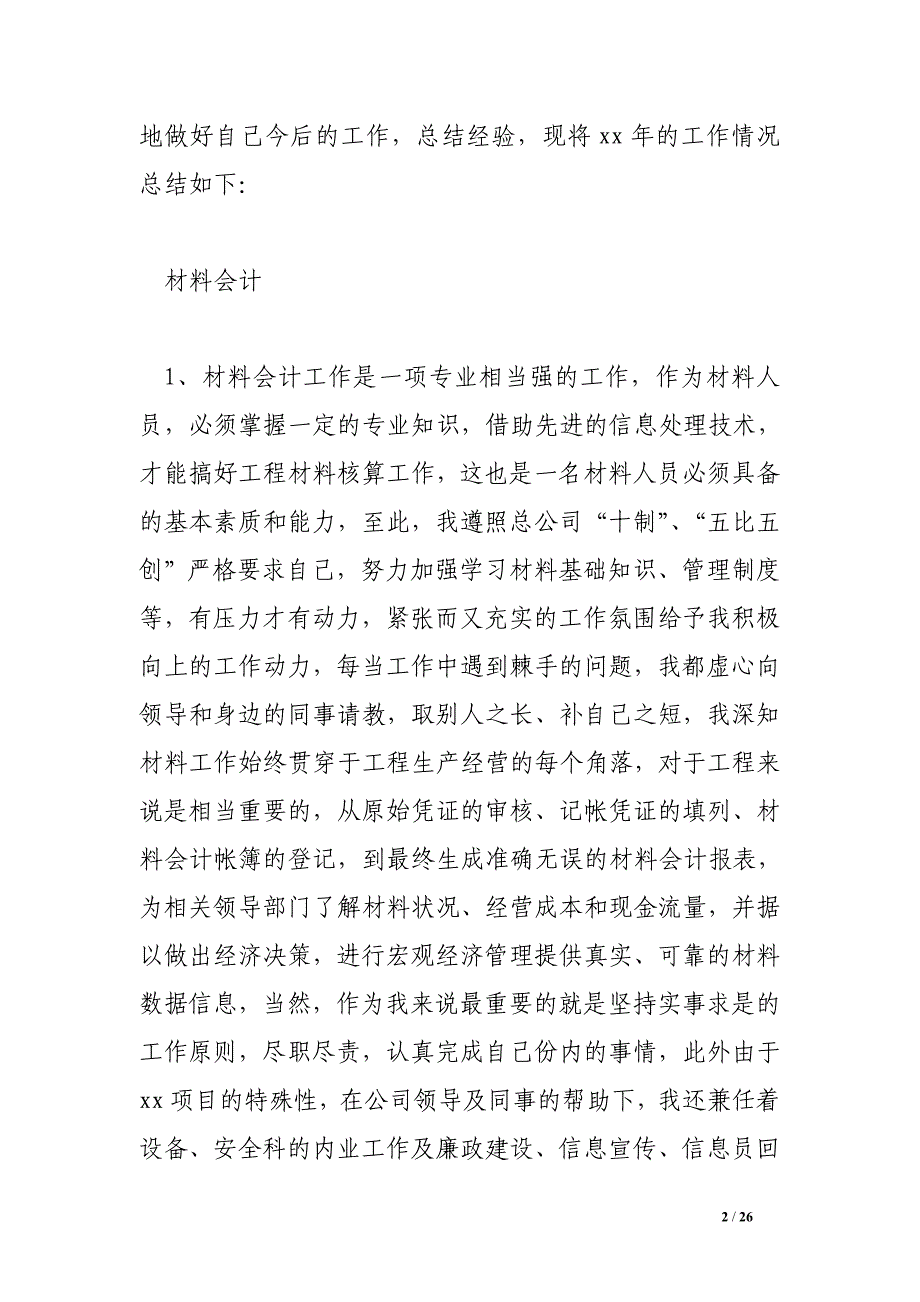 地做好自己今后的工作，总结经验，现将 xx 年的工作情况
总结如下：
材料会计
1、材料会计工作是一项专业相当强的工作，作为材料人
员，必须掌握一定的专业知识，借助先进的信息处理技术，
才能搞好工程材料核算工作，这也是一名材料人员必须具备
的基本素质和能力，至此，我遵照总公司“十制”、“五比五
创”严格要求自己，努力加强学习材料基础知识、管理制度
等，有压力才有动力，紧张而又充实的工作氛围给予我积极
向上的工作动力，每当工作中遇到棘手的问题，我都虚心向
领导和身边的同事请教，取别人之长、补自己之短，我深知
材料工作始终贯穿于工程生产经营的每个角落，对于工程来
说是相当重要的，从原始凭证的审核、记帐凭证的填列、材
料会计帐簿的登记，到最终生成准确无误的材料会计报表，
为相关领导部门了解材料状况、经营成本和现金流量，并据
以做出经济决策，进行宏观经济管理提供真实、可靠的材料
数据信息，当然，作为我来说最重要的就是坚持实事求是的
工作原则，尽职尽责，认真完成自己份内的事情，此外由于
xx 项目的特殊性，在公司领导及同事的帮助下，我还兼任着
设备、安全科的内业工作及廉政建设、信息宣传、信息员回
2 / 26